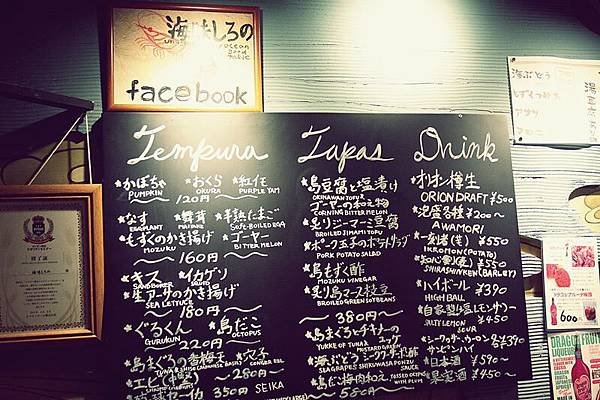 海味しろの
ocean
good
table
facebook
海ぶどう
Tempura
★かぼちゃ ★おくら ★紅イモ
PUMPKIN OKURA PURPLE YAM
～120円～
★なす ★舞茸 ★半熟たまご
EGGPLANT MAITAKE SOFT-BOILED EGG
★もずくのかき揚げ ★ゴーヤー
MOZUKU BITTER MELON
～160円～
★キス ★イカゲソ
SANDBORER SQUID
★生アーサのかき揚げ
SEA LETTUCE
～180円～
★ぐるくん ★島だこ
GURUKUN OCTOPUS
～220円～
★島まぐろの香梅天 ★穴子
CONGER EEL
～280円～
★エビ(中2本)
SHRIMP
350円 SEIKA
Tapas
★島豆腐と塩漬け
OKINAWAN TOFU
★ゴーヤーの和え物
CORNING BITTER MELON
★炙りジーマーミ豆腐
BROILED JIMAMI TOFU
★ポーク玉子のポテトサラダ
PORK POTATO SALAD
★島もずく酢
MOZUKU VINEGAR
★炙り島マース枝豆
BROILED GREEN SOYBEANS
～380円～
★島まぐろとチキナーのユッケ
YUKKE OF TUNA & MUSTARD GREEN
★海ぶどうシークワーサーポン酢
SEAGRAPES SHIKUWASA PONZU SAUCE
★島だこ梅肉和え
TOSSED OCTOPUS WITH PLUM
～580円～
Drink
★オリオン樽生
ORION DRAFT ¥500
★泡盛各種 ¥200～
AWAMORI
★一刻者(芋) ¥550
IKKOMON (POTATO)
★知心剣(麦) ¥550
SHIRASHINKEN (BARLEY)
★ハイボール ¥390
HIGH BALL
★自家製塩レモンサワー
SALTY LEMON SOUR ¥450
★シークヮーサー・ウーロン 各¥390
サンピンハイ
★日本酒 ¥590～
★果実酒 ¥450～
600
DRAGON FRUIT